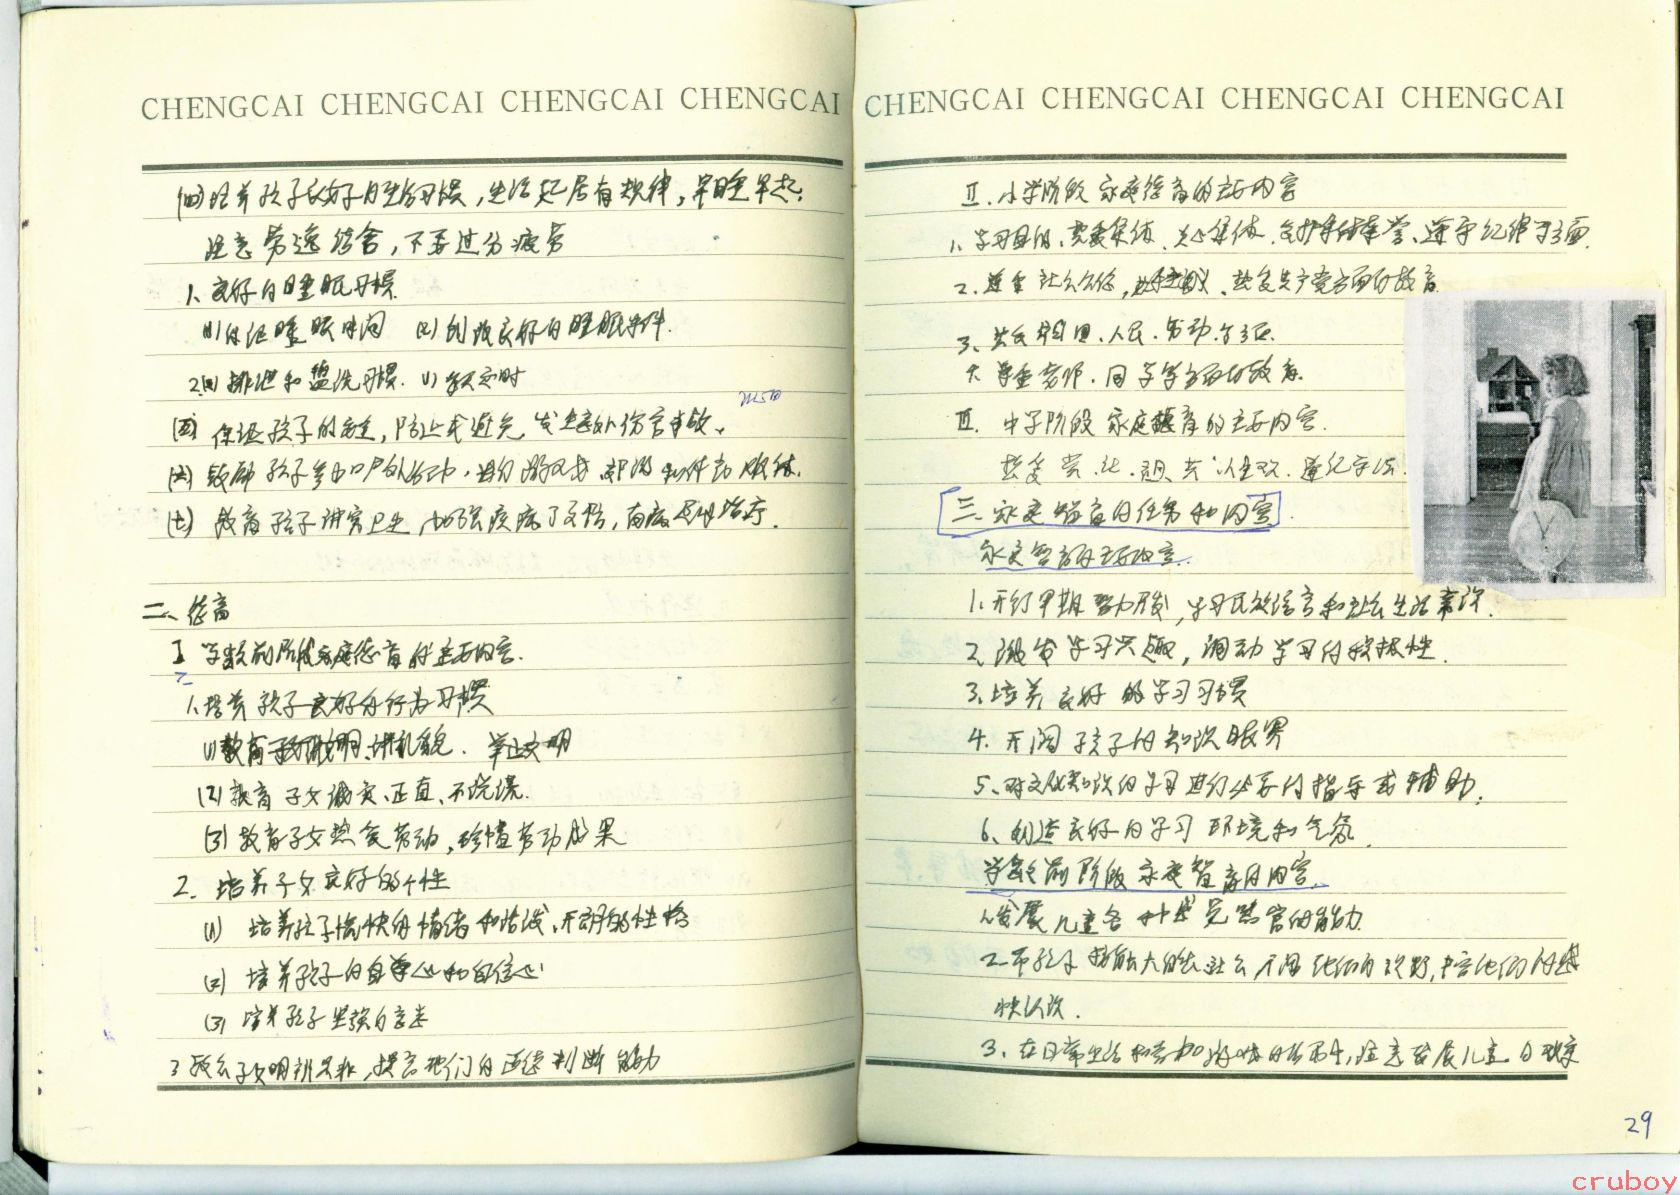 CHENGCAI CHENGCAI CHENGCAI CHENGCAI
(四)培养孩子良好的生活习惯，生活起居有规律，早睡早起，
注意劳逸结合，不要过分疲劳
1、良好的睡眠习惯
(1)保证睡眠时间 (2)创设良好的睡眠条件.
2、排泄和盥洗习惯. (1)定时
(五) 保证孩子的安全，防止或避免发生意外伤害事故。
(六) 鼓励孩子参加户外活动，进行游戏
(七) 教育孩子讲究卫生，加强疾病预防，有病及时治疗.
二、德育
I 学龄前阶段家庭德育的主要内容.
1、培养孩子良好的行为习惯
(1)教育子女讲礼貌. 举止文明
(2) 教育子女诚实、正直、不说谎.
(3) 教育子女热爱劳动，珍惜劳动成果
2、培养子女良好的个性
(1) 培养孩子愉快的情绪和活泼、开朗的性格
(2) 培养孩子的自尊心和自信心
(3) 培养孩子坚强的意志
3 教会子女明辨是非，提高他们的道德判断能力
CHENGCAI CHENGCAI CHENGCAI CHENGCAI
II. 小学阶段家庭德育的主要内容
1、学习目的、热爱集体、关心集体、爱护集体荣誉、遵守纪律等方面.
2、遵守社会公德，热爱共产党方面的教育
3、热爱祖国、人民、劳动、
尊重老师、同学等方面的教育.
III. 中学阶段家庭德育的主要内容.
热爱
三、家庭智育的任务和内容.
家庭智育的主要内容.
1、开发早期智力，学习民族语言和社会生活常识.
2、激发学习兴趣，调动学习的积极性.
3、培养良好的学习习惯
4、开阔孩子的知识眼界
5、对文化知识的学习进行必要的指导或辅助；
6、创造良好的学习环境和气氛.
学龄前阶段家庭智育的内容.
1、发展儿童各种感觉器官的能力.
2、带孩子接触大自然社会 开阔他们的视野，丰富他们的感
性认识.
3、在日常生活和参加游戏的活动中，注意发展儿童的观察
29
cruboy